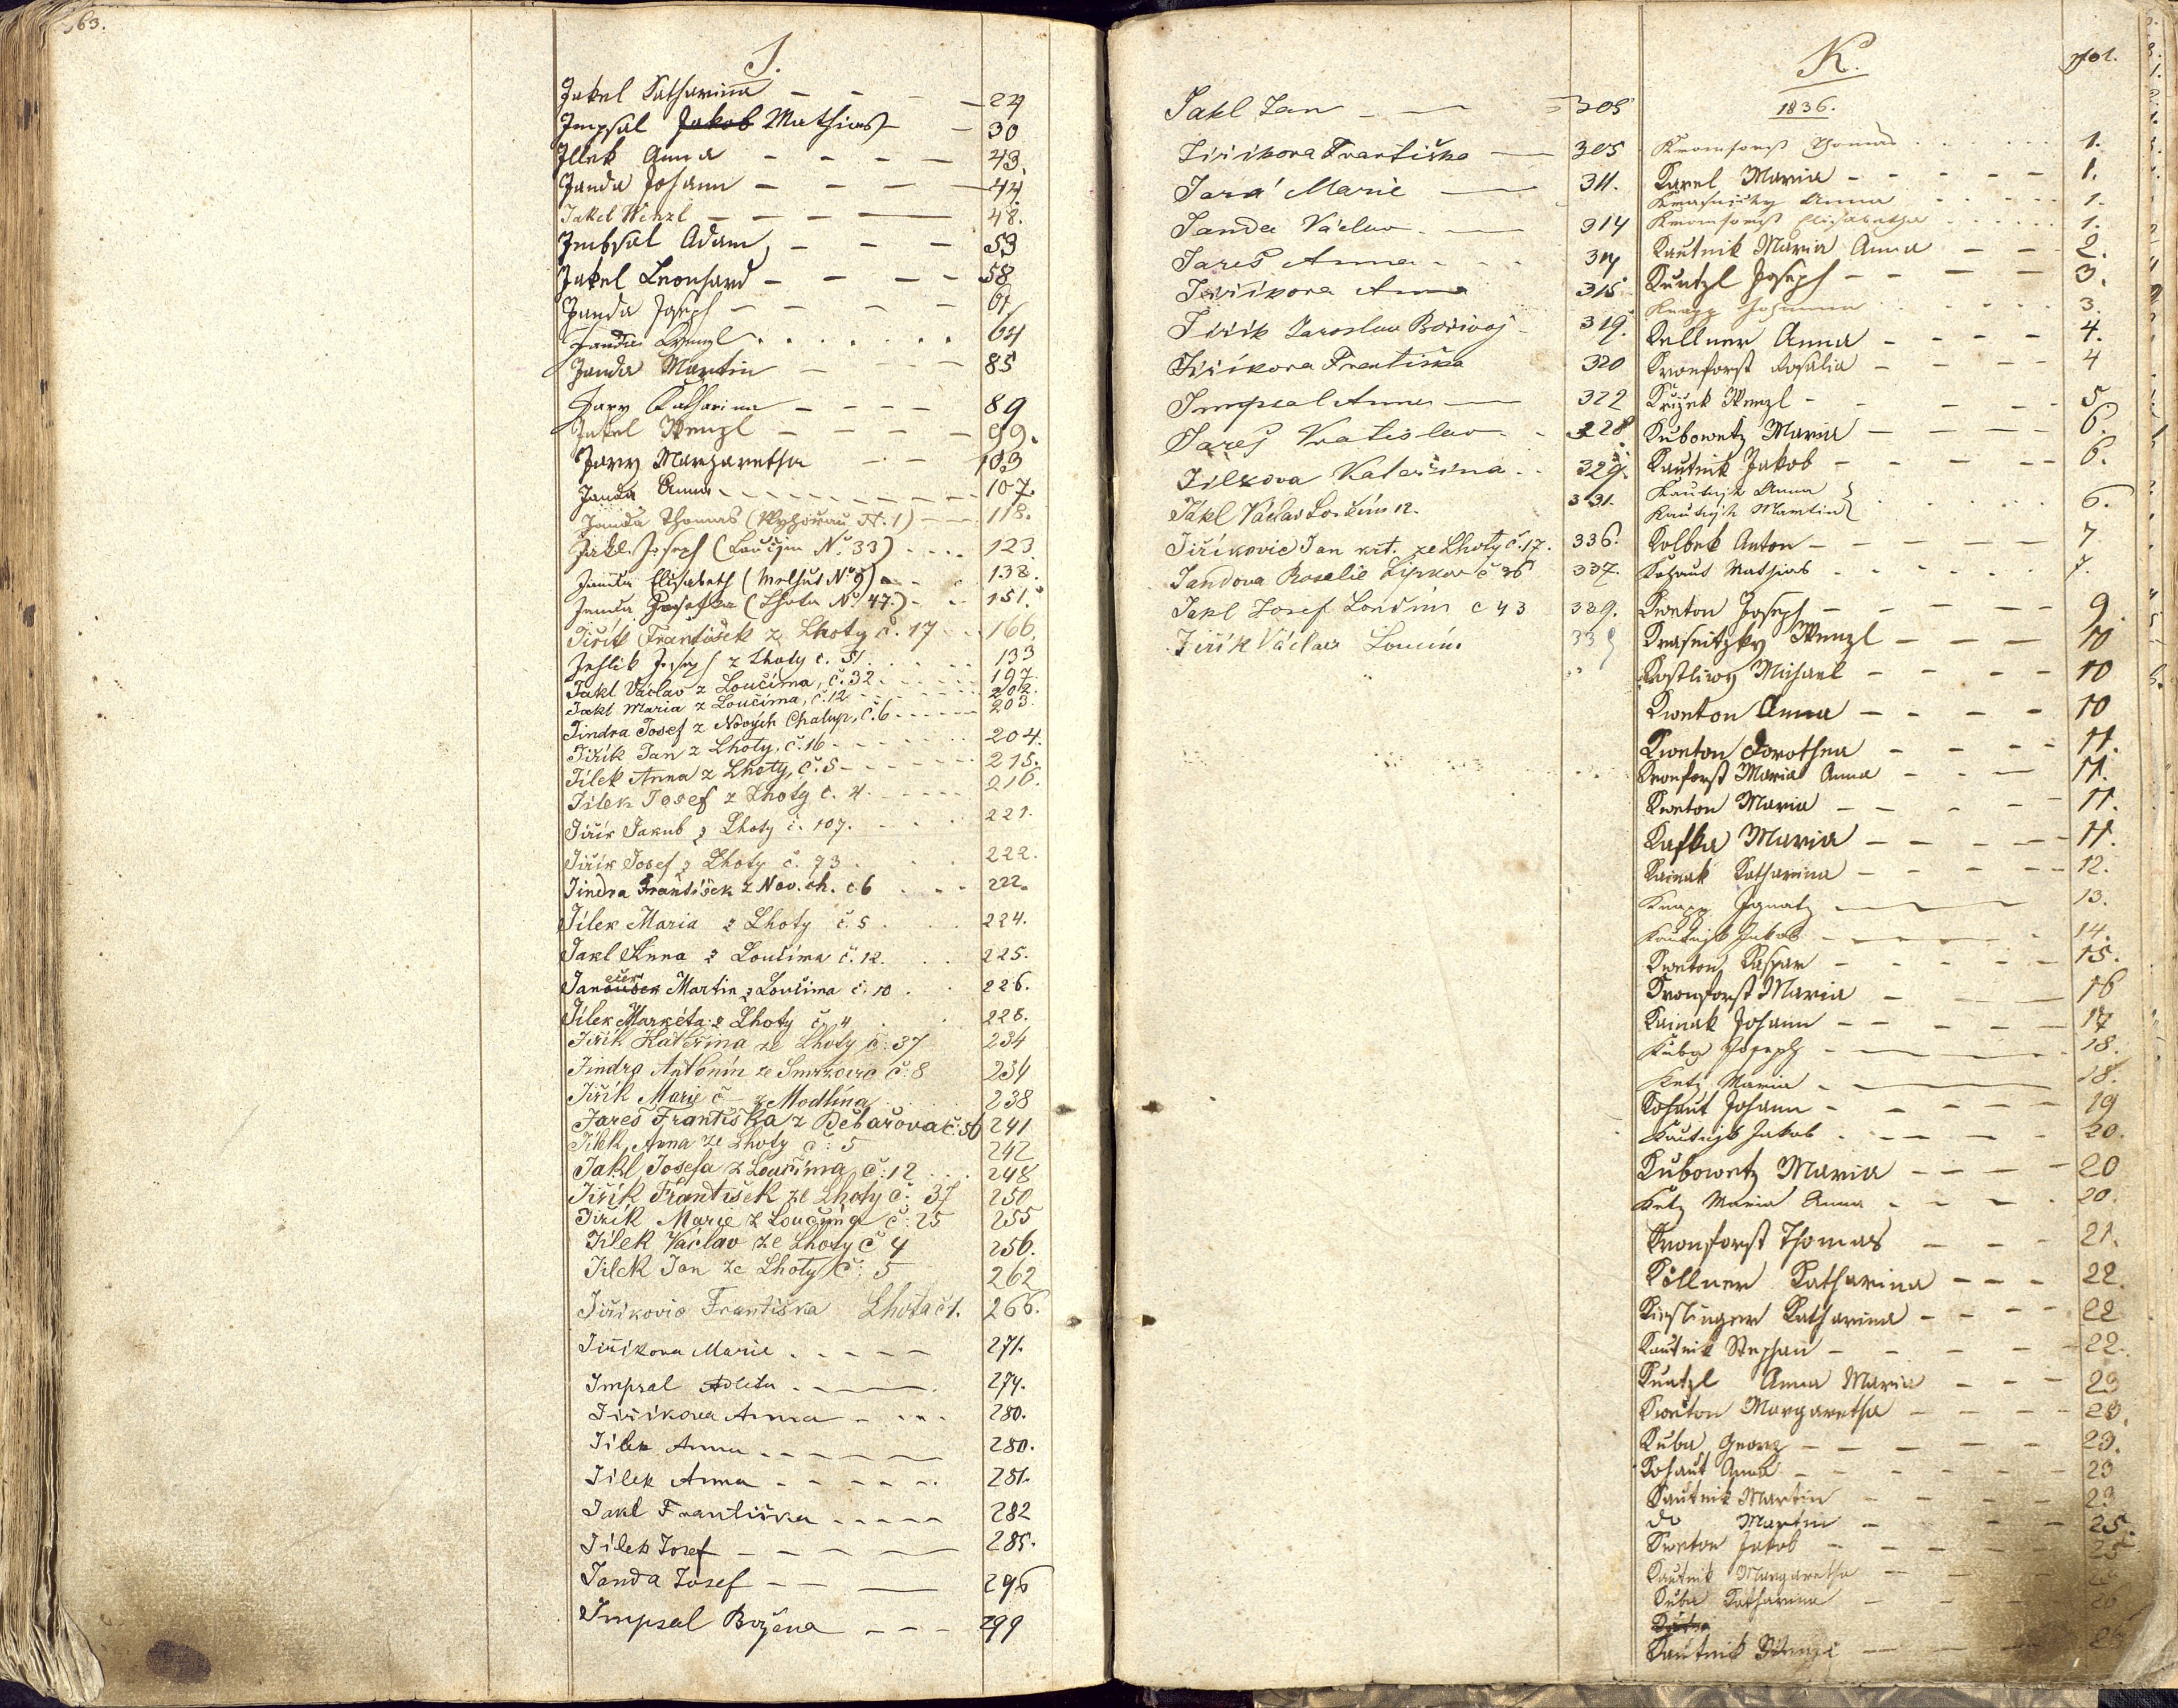 63.
J.
Jakel Katharina 24
Impsal Jakob Mathias 30
Jllek Anna 43.
Janda Johann 44.
Jakel Wenzl 48.
Imbsal Adam 53
Jakel Leonhard 58
Janda Joseph 61
Janda Wenzl 64
Janda Martin 85
Jary Katharina 89
Jakel Wenzl 99.
Jary Margaretha 103
Janda Anna 107.
Janda Thomas (Wyhořau N. 1) 118.
Jakl Joseph (Loučim No. 33) 123.
Janda Elisabeth (Melhut No 9) 138.
Janda Josefka (Lhota No. 47.) 151.
Jiřík František z Lhoty č. 17 166.
Jehlik Joseph z Lhoty č. 51. 133
Jakl Václav z Loučíma, č. 32 197.
Jakl Maria z Loučíma, č. 12 202.
Jindra Josef z Nových Chalup, č. 6 203.
Jiřík Jan z Lhoty, č. 16 204.
Jílek Anna z Lhoty, č. 5 215.
Jílek Josef z Lhoty č. 4. 216.
Jiřík Jakub z Lhoty č. 107. 221.
Jiřík Josef z Lhoty č. 73. 222.
Jindra František z Nov. ch. č. 6 222.
Jílek Maria z Lhoty č. 5. 224.
Jakl Anna z Loučíma č. 12. 225.
Janoušek Martin z Loučíma č. 10. 226.
Jílek Markéta z Lhoty č. 4 228.
Jiřík Kateřina ze Lhoty č. 37 234
Jindra Antonín ze Smržovic č. 8 234
Jiřík Marie č – z Modlína 238
Jareš Františka z Děbařova č: 56 241
Jílek Anna ze Lhoty č: 5 242
Jakl Josefa z Loučíma, č: 12 248
Jiřík František ze Lhoty č. 37 250
Jiřík Marie z Loučíma č: 25 255
Jílek Václav ze Lhoty č 4 256.
Jílek Jan ze Lhoty č: 5 262
Jiříkovic Františka Lhota č 1. 266.
Jiříkova Marie 271.
Impsal 274.
Jiříkova Anna 280.
Jílek Anna 280.
Jílek Anna 281.
Jakl Františka 282
Jílek Josef 285.
Janda Josef 296
Impsal Božena 299
Jakl Jan 305
Jiříkova Františka 305
Jará Marie 311.
Janda Václav 314
Jareš Anna 314
Jiříkova Anna 315
Jiřík Jaroslav Bořivoj 319.
Jiříkova Františka 320
Impsal Anna 322
Jareš Vratislav 328
Jílkova Kateřina 329.
Jákl Václav Loučím 12. 331.
Jiříkovic Jan křt. ze Lhoty č. 17. 336.
Jandova Rosalie Lipkov č 36 337.
Jakl Josef Loučím č 43 339.
Jiřík Václav Loučím 339
K. Fol.
1836.
Kronforst Thomas 1.
Karel Maria 1.
Krasnitzky Anna 1.
Kronforst Elisabetha 1.
Kautnik Maria Anna 2.
Kuntzl Joseph 3.
Knapp Johanna 3.
Kellner Anna 4.
Kronforst Rosalia 4
Křížek Wenzl 5
Kubowetz Maria 6.
Kautnik Jakob 6.
Kautnik Anna
Kautnik Martin 6.
Kolbek Anton 7
Kohaut Mathias 7.
Kweton Joseph 9.
Krasnitzky Wenzl 10
Kostliwy Michael 10
Kweton Anna 10
Kweton Dorothea 11.
Kronforst Maria Anna 11.
Kweton Maria 11.
Kafka Maria 11.
Kainak Katharina 12.
Knapp Ignatz 13.
Kautnik Jakob 14.
Kweton Kaspar 15.
Kronforst Maria 16
Kainak Johann 17
Kuba Joseph 18.
Ketz Maria 18.
Kohaut Johann 19
Kautnik Jakob 20.
Kubowetz Maria 20
Ketz Maria Anna 20.
Kronforst Thomas 21.
Köllner Katharina 22.
Kieslinger Katharina 22
Kautnik Stephan 22.
Kuntzl Anna Maria 23
Kweton Margaretha 23.
Kuba Georg 23.
Kohaut Anna 23
Kautnik Martin 23
do Martin 25.
Kweton Jakob 25
Kautnik Margaretha
Kuba Katharina 26
Kautnik Wenzl